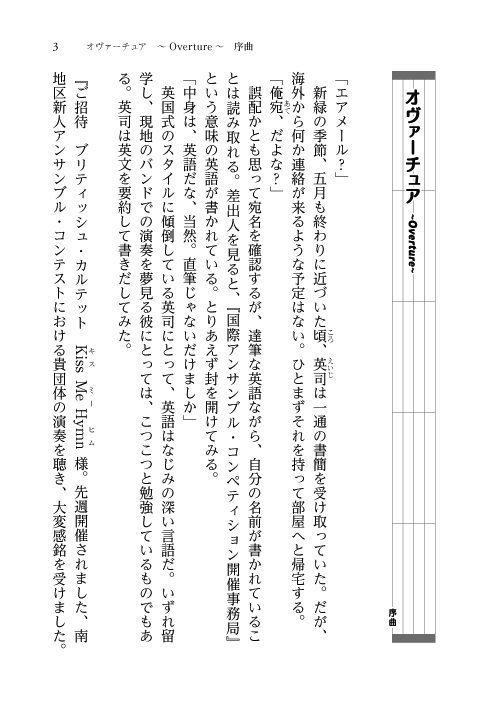 3　オヴァーチュア　～ Overture ～　序曲
オヴァーチュア ~Overture~
序曲
「エアメール？」
　新緑の季節、五月も終わりに近づいた頃、英司は一通の書簡を受け取っていた。だが、
海外から何か連絡が来るような予定はない。ひとまずそれを持って部屋へと帰宅する。
「俺宛、だよな？」
　誤配かとも思って宛名を確認するが、達筆な英語ながら、自分の名前が書かれているこ
とは読み取れる。差出人を見ると、『国際アンサンブル・コンペティション開催事務局』
という意味の英語が書かれている。とりあえず封を開けてみる。
「中身は、英語だな、当然。直筆じゃないだけましか」
　英国式のスタイルに傾倒している英司にとって、英語はなじみの深い言語だ。いずれ留
学し、現地のバンドでの演奏を夢見る彼にとっては、こつこつと勉強しているものでもあ
る。英司は英文を要約して書きだしてみた。
『ご招待　ブリティッシュ・カルテット　Kiss Me Hymn 様。先週開催されました、南
地区新人アンサンブル・コンテストにおける貴団体の演奏を聴き、大変感銘を受けました。